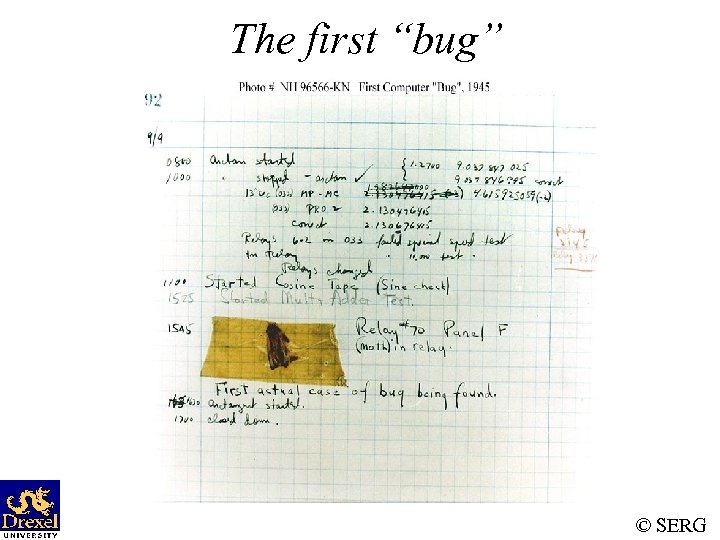 The first “bug”
Photo # NH 96566-KN First Computer "Bug", 1945
92
9/9
0800 Antan started
1000 " stopped - antan ✓ { 1.2700 9.037 847 025
9.037 846 795 correct
13"uc (032) MP - MC 2.130476415 4.615925059(-2)
(033) PRO 2 2.130476415
correct 2.130676415
Relays 6-2 in 033 failed special speed test
in Relay " 11.00 test.
Relay
2145
Relay 3370
Relays changed
1100 Started Cosine Tape (Sine check)
1525 Started Multi Adder Test.
1545 Relay #70 Panel F
(moth) in relay.
First actual case of bug being found.
1630 antangent started.
1700 closed down.
Drexel
UNIVERSITY
© SERG